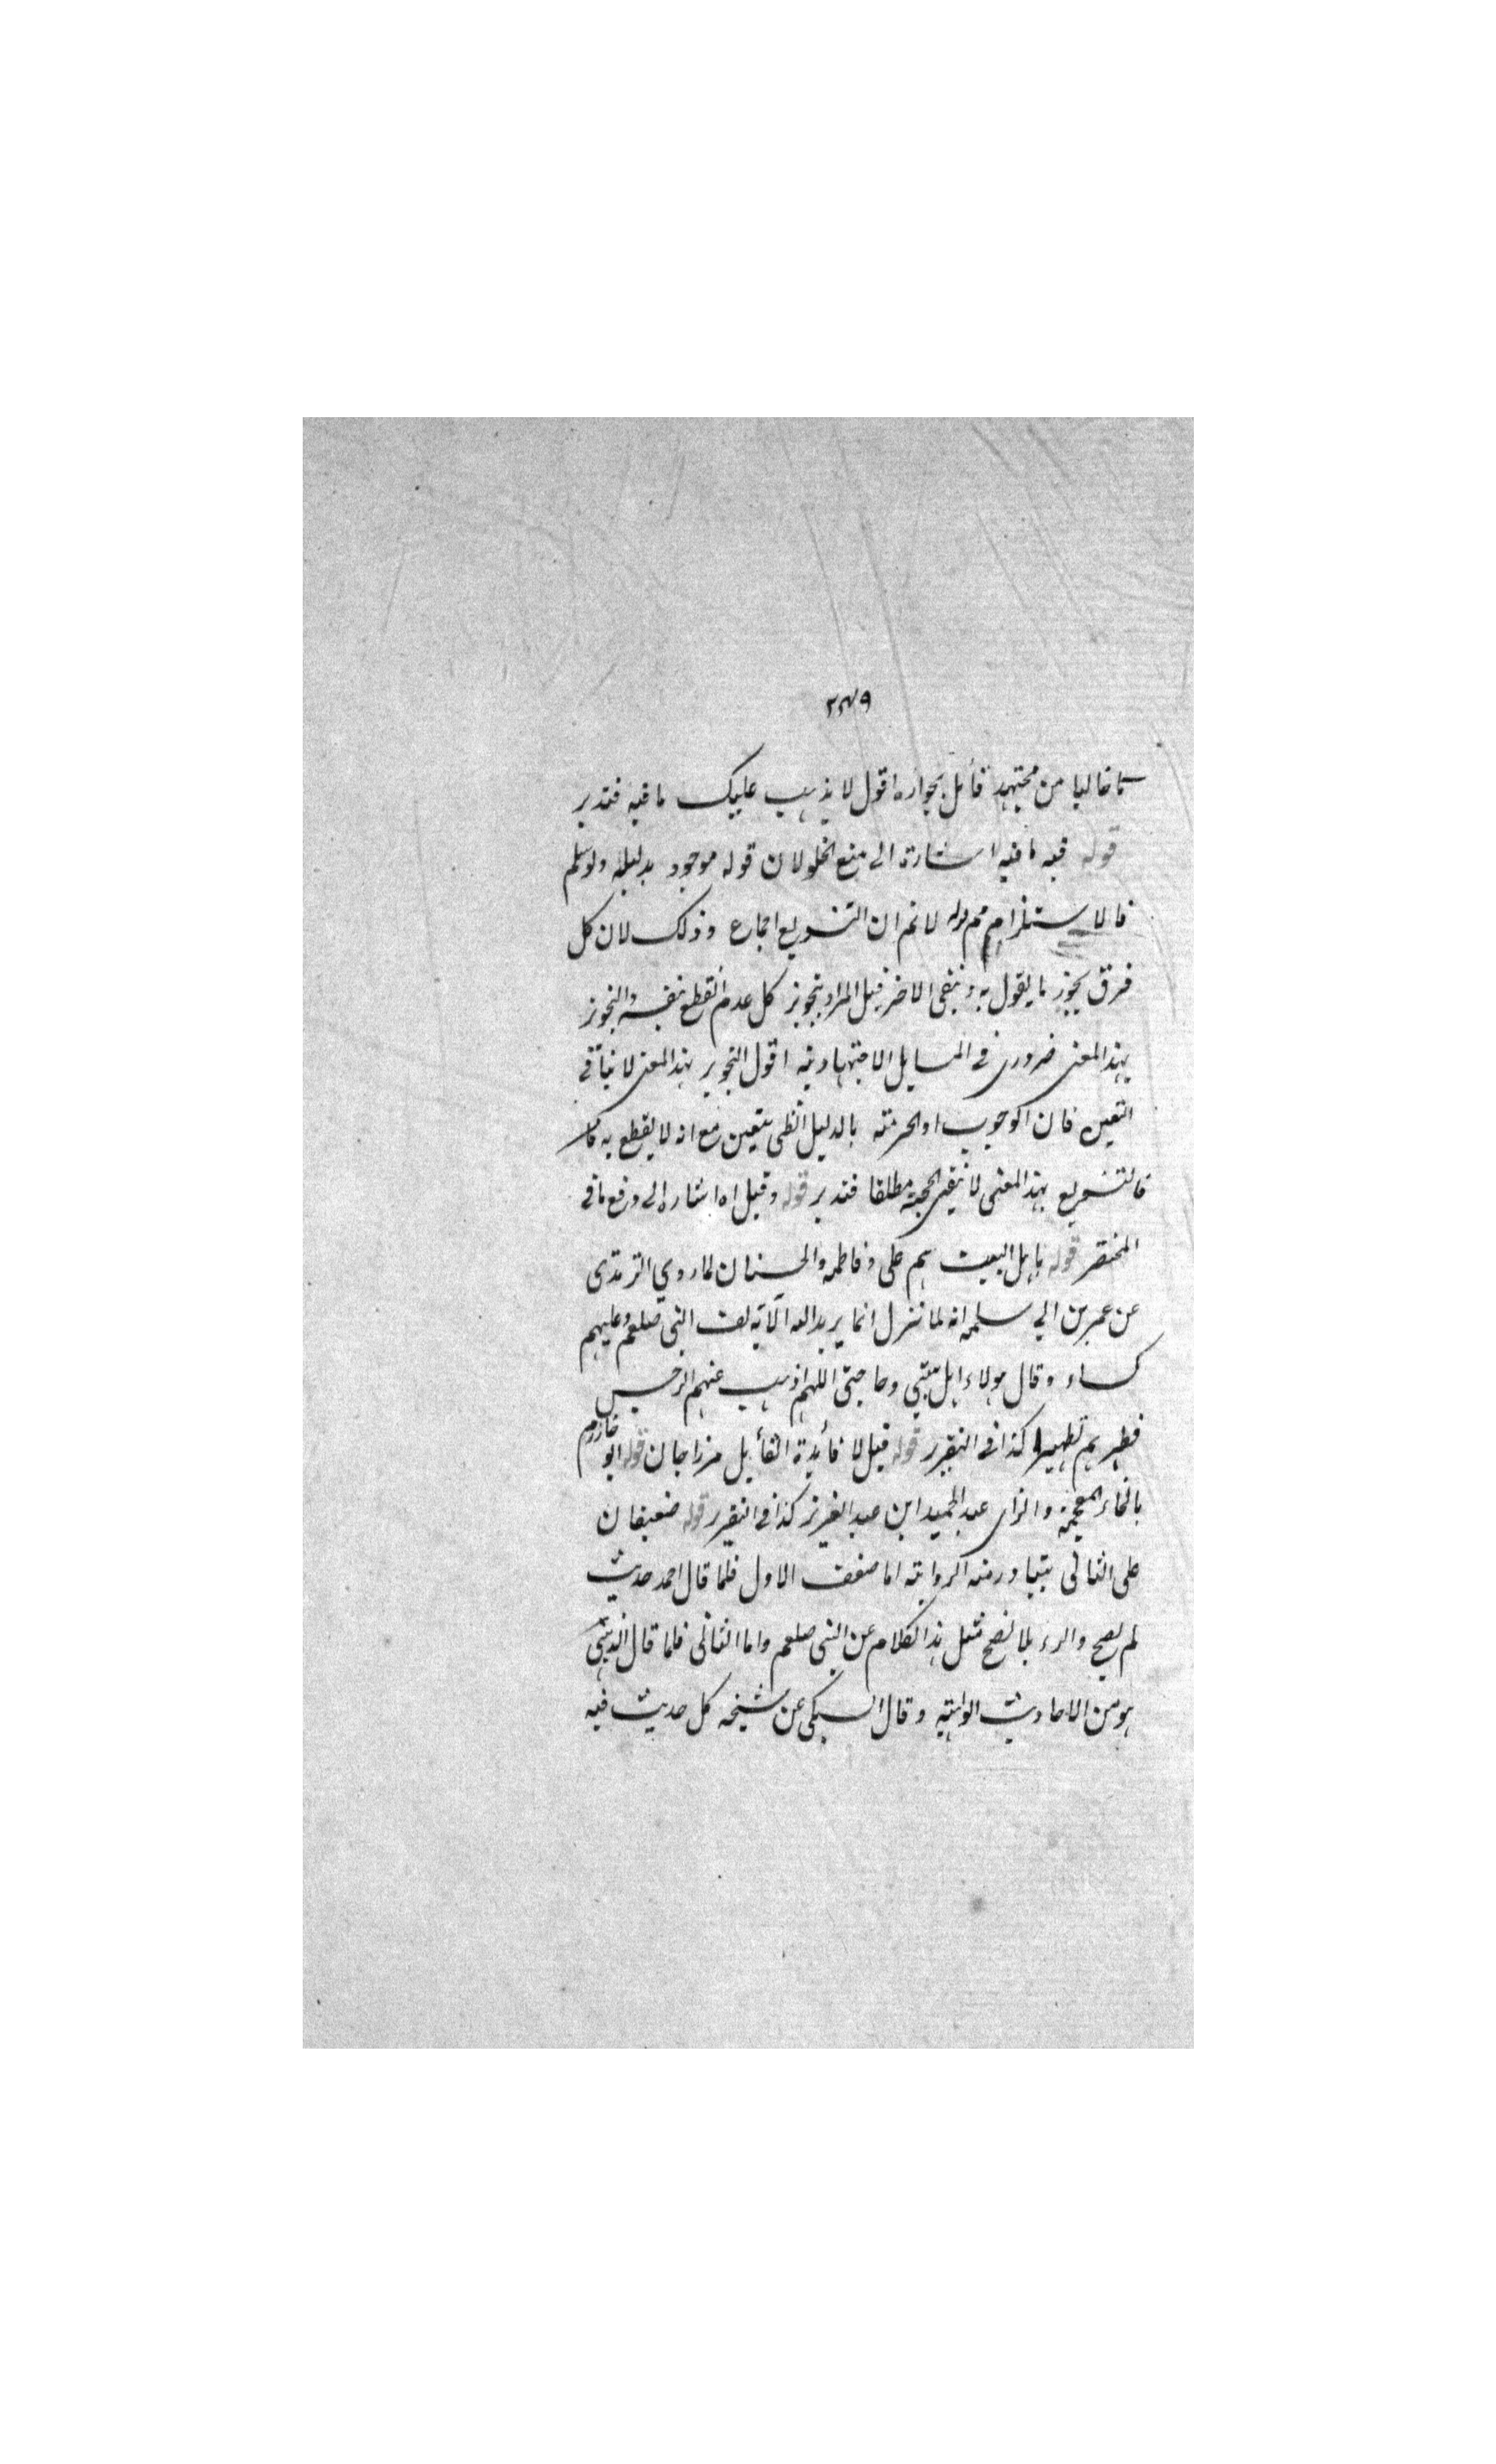 ٢٣٩
خاليا من مجتهد قائل بجوازه اقول لا يذهب عليك ما فيه فتدبر
قوله فيه ما فيه اشارة الى منع الخلو لان قوله موجود بدليله ولو سلم
فالاستلزام مم قوله لا نم ان التسويع اجماع وذلك لان كل
فرق يجوز ما يقول به وينفي الاخر قيل المراد بتجويز كل عدم القطع بنفيه والتجويز
بهذا المعنى ضروري في المسايل الاجتهادية اقول التجويز بهذا المعنى لا ينافي
التعين فان الوجوب او الحرمته بالدليل الظني يتعين مع انه لا يقطع به
فالتسويع بهذا المعنى لا ينفي الحجية مطلقا فتدبر قوله وقيل اه اشاره الى دفع ما في
المختصر قوله باهل البيت هم على وفاطمه والحسنان لما روي الترمذى
عن عمر بن ابي سلمه انه لما نزل انما يريد الله الآيه لف النبى صلعم عليهم
كساء وقال هولاء اهل بيتي وحاجتى اللهم اذهب عنهم الرجس
فطهرهم تطهيرا كذا فى التقرير قوله قيل لا فائدة القائل مرزا جان قوله ابو خازم
بالخاء المعجمة والزاى عبد الحميد ابن عبد العزيز كذا فى التقرير قوله ضعيفان
على الثانى يتبادر منه الروايته اما ضعف الاول فلما قال احمد حديث
لم يصح والرء بلا نصح مثل هذا الكلام عن النبى صلعم واما الثانى فلما قال الذهبى
هو من الاحاديث الواهيه وقال السبكى عن شيخه كل حديث فيه